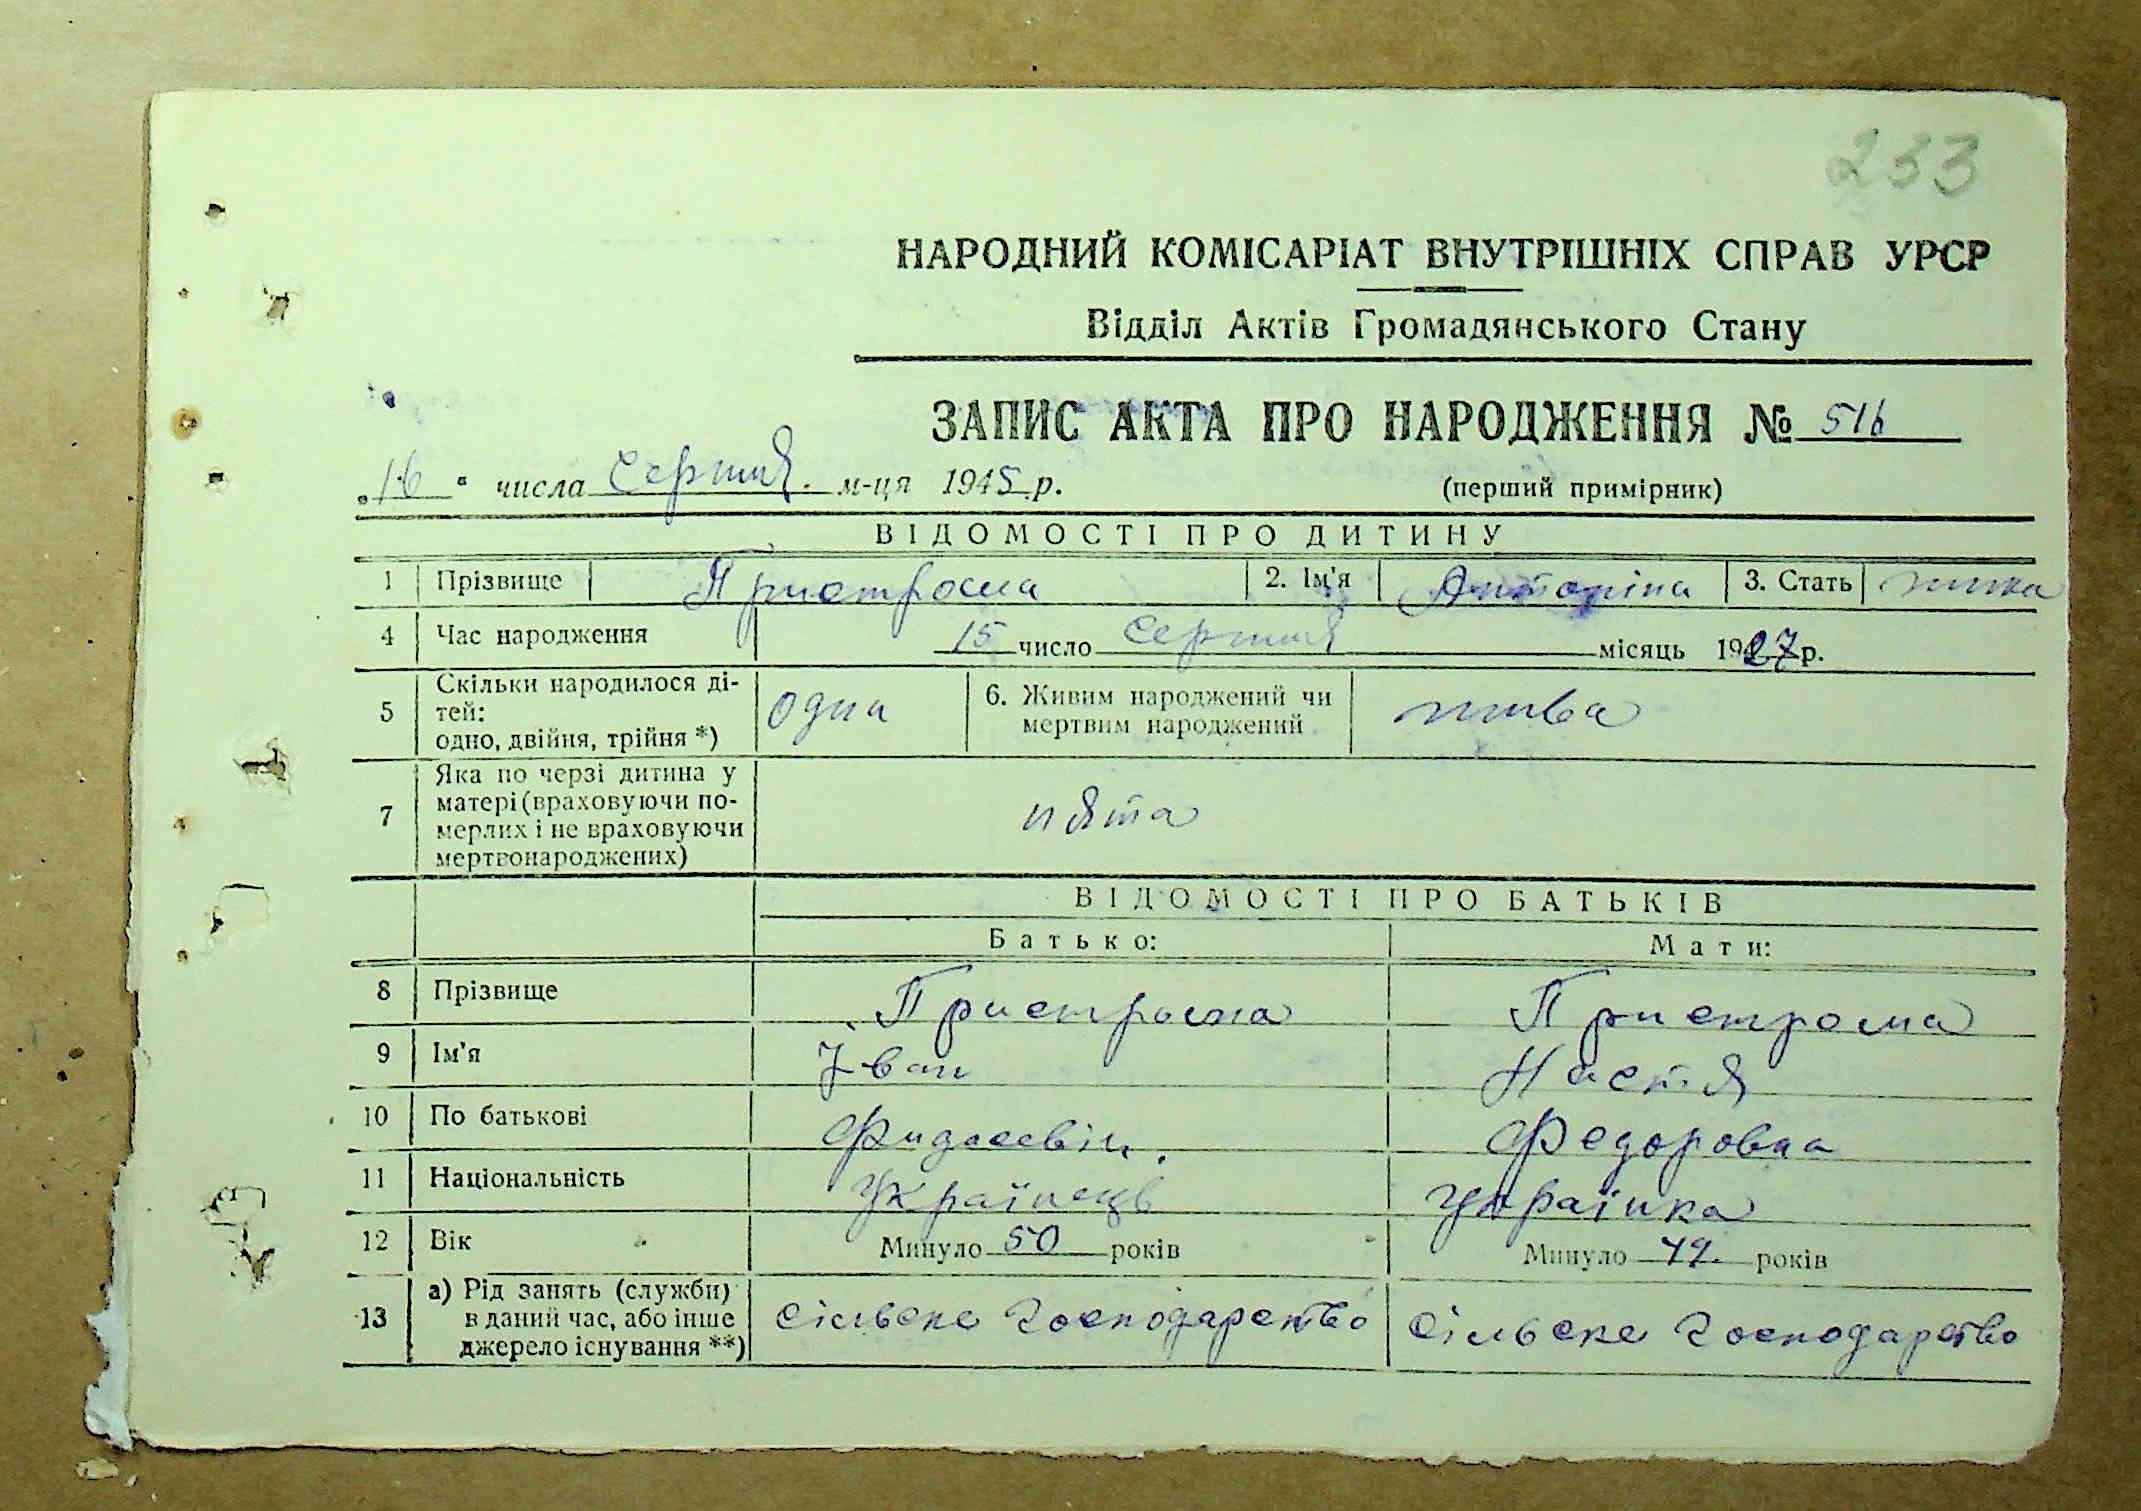 233
НАРОДНИЙ КОМІСАРІАТ ВНУТРІШНІХ СПРАВ УРСР
Відділ Актів Громадянського Стану
ЗАПИС АКТА ПРО НАРОДЖЕННЯ № 516
„16“ числа Серпня м-ця 1945 р. (перший примірник)
ВІДОМОСТІ ПРО ДИТИНУ
1 Прізвище Пристрома 2. Ім'я Антоніна 3. Стать
4 Час народження 15 число Серпня місяць 1927 р.
5 Скільки народилося ді-
тей:
одно, двійня, трійня *) одна 6. Живим народжений чи
мертвим народжений жива
7 Яка по черзі дитина у
матері (враховуючи по-
мерлих і не враховуючи
мертвонароджених) пята
ВІДОМОСТІ ПРО БАТЬКІВ
Батько: Мати:
8 Прізвище Пристрома Пристрома
9 Ім'я Іван Настя
10 По батькові Федоровна
11 Національність Українець Українка
12 Вік Минуло 50 років Минуло 49 років
13 а) Рід занять (служби)
в даний час, або інше
джерело існування **) сільске господарство сільске господарство